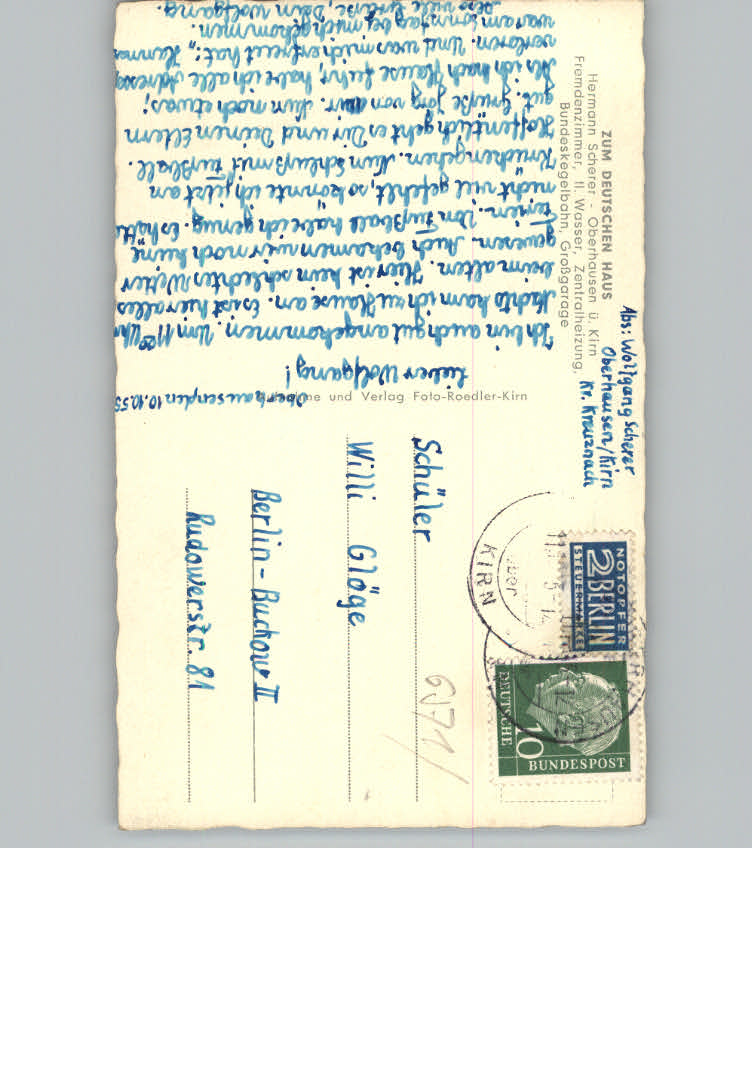 ZUM DEUTSCHEN HAUS
Hermann Scherer - Oberhausen ü. Kirn
Fremdenzimmer, fl. Wasser, Zentralheizung,
Bundeskegelbahn, Großgarage
Abs: Wolfgang Scherer
Oberhausen/Kirn
Kr. Kreuznach
Oberhausen, den 10.10.55
Lieber Wolfgang!
Ich bin auch gut angekommen. Um 11 Uhr
Nachts kam ich zu Hause an. Es ist hier alles
beim alten. Hier ist kein schlechtes Wetter
gewesen. Auch bekamen wir noch keine
Ferien. Von Fußball habe ich genug. Es hätte
nicht viel gefehlt, so könnte ich jetzt an
Krücken gehen. Nun Schluß mit Fußball.
Hoffentlich geht es Dir und Deinen Eltern
gut. Grüße Jörg von mir. Nun noch etwas;
Als ich nach Hause fuhr, habe ich alle
verloren. Und was mich erfreut hat:
waram Sonntag bei mich gekommen.
viele Grüße, Dein Wolfgang.
Aufnahme und Verlag Foto-Roedler-Kirn
Schüler
Willi Glöge
Berlin-Buckow II
Rudowerstr. 81
6J71/
NOTOPFER
2 BERLIN
STEUERMARKE
DEUTSCHE
BUNDESPOST
10
KIRN